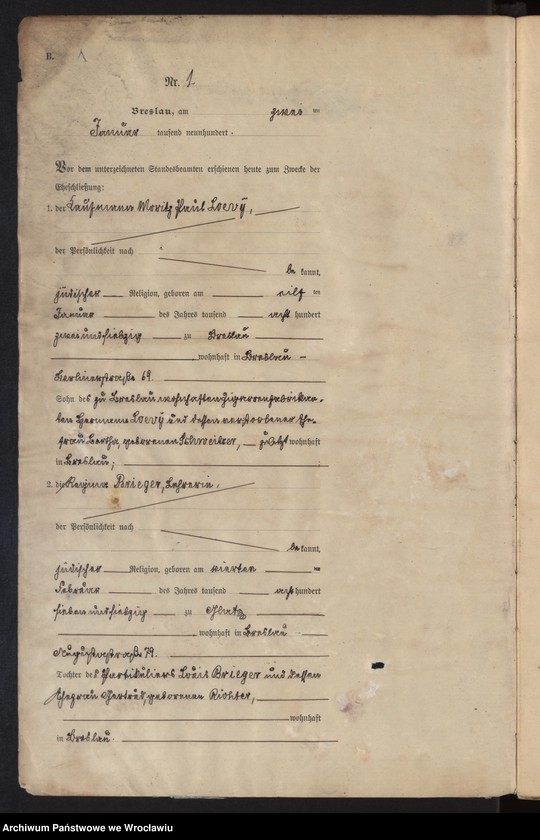 B. 1
Nr. 1.
Breslau, am zwei ten
Januar tausend neunhundert.
Vor dem unterzeichneten Standesbeamten erschienen heute zum Zwecke der
Eheschließung:
1. der Kaufmann Moritz Paul Loevÿ,
der Persönlichkeit nach
be kannt,
jüdischer Religion, geboren am eilf ten
Januar des Jahres tausend acht hundert
zweiundsiebzig zu Breslau
, wohnhaft in Breslau
Berlinerstraße 69.
Sohn des zu Breslau wohnhaften Zigarrenfabrikan-
ten Hermann Loevÿ und dessen verstorbener Ehe-
frau Bertha, geborenen Schweitzer, zuletzt wohnhaft
in Breslau;
2. die Regina Brieger, Lehrerin,
der Persönlichkeit nach
be kannt,
jüdischer Religion, geboren am vierten ten
Februar des Jahres tausend acht hundert
siebenundsiebzig zu Glatz
, wohnhaft in Breslau
Augustastraße 79.
Tochter des Partikuliers Louis Brieger und dessen
Ehefrau Gertrud, geborenen Richter,
wohnhaft
in Breslau.
Archiwum Państwowe we Wrocławiu